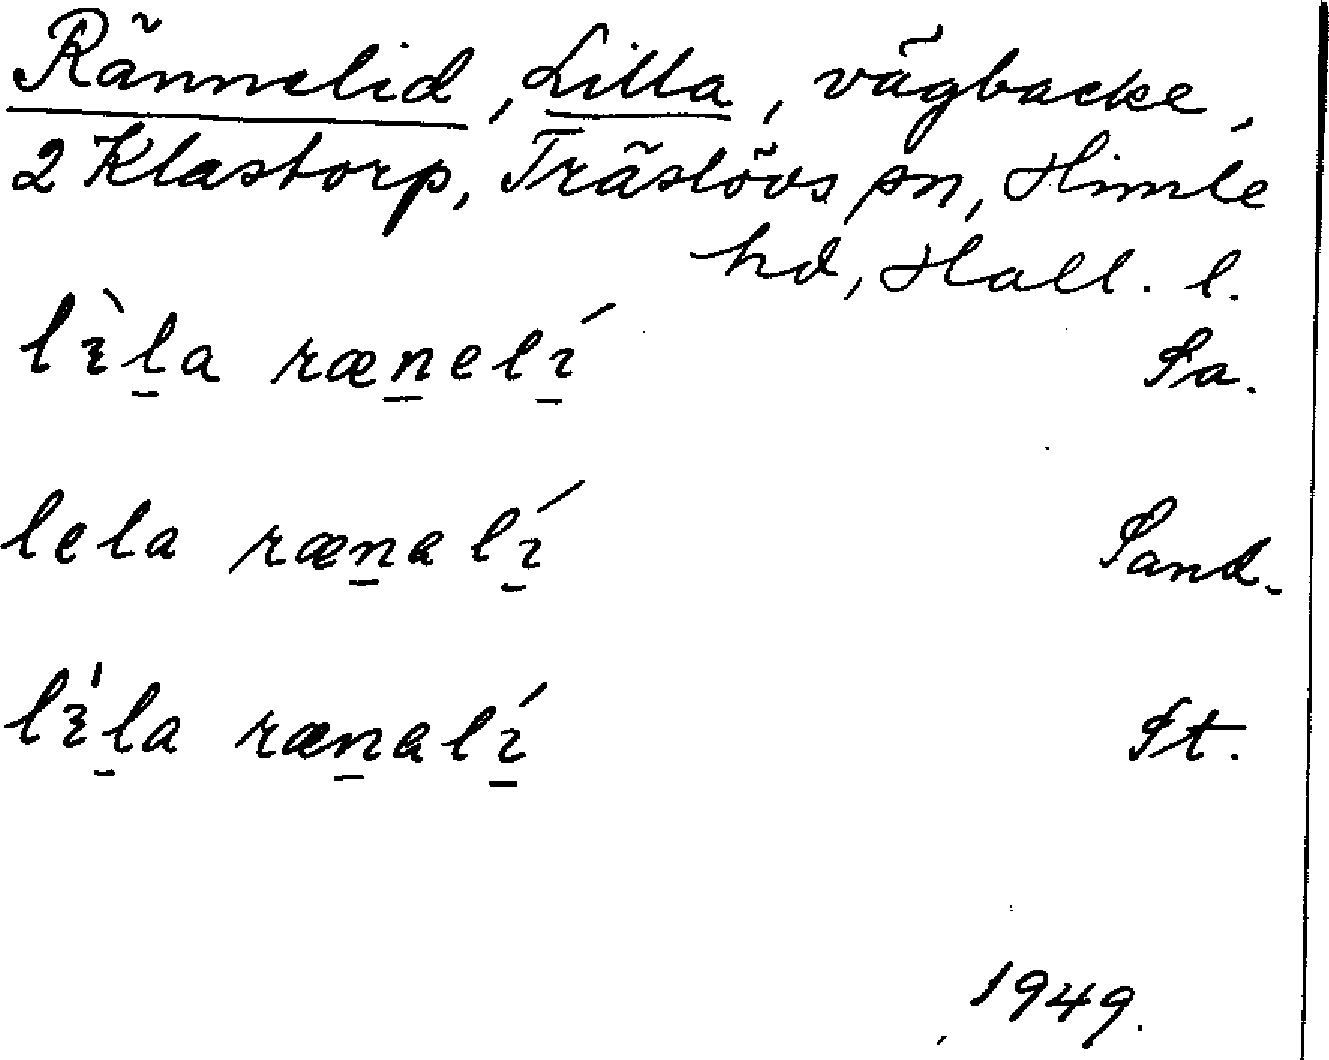 Rännelid, Lilla, vägbacke,
2 Klastorp, Träslövs sn, Himle
hd, Hall. l.
lìla rænelí Sa.
lela rænalí Sand.
lìla rænalí St.
1949.